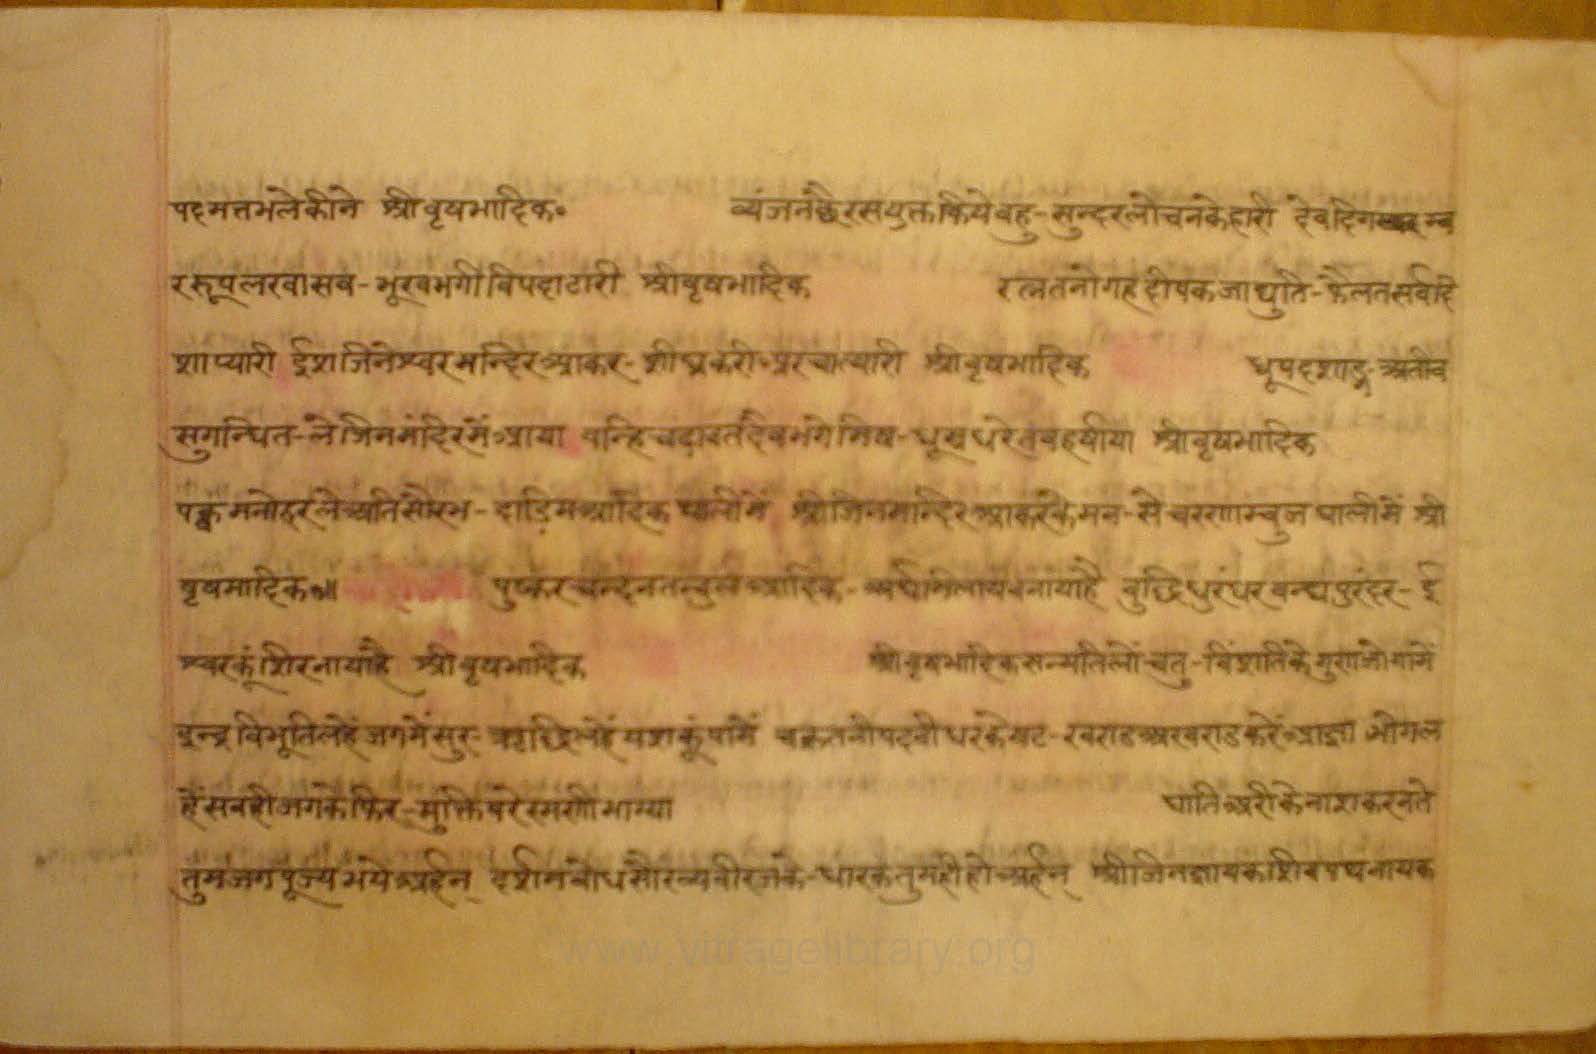 पदमत्तभलेकीने श्रीवृषभादिक॰ व्यंजनछैरसयुक्तकियेबहु-सुन्दरलोचनकेहारी देवदिगम्ब
ररूपलखासब-भूखभगीविपदाटारी श्रीवृषभादिक रत्नतनोगहदीपकजाद्युति-फैलतसर्वदि
शाप्यारी ईशजिनेश्वरमन्दिरआकर-शीघ्रकरी श्रीवृषभादिक धूपदशाङ्ग-अतीव
सुगन्धित-लेजिनमंदिरमेंआया वन्हि श्रीवृषभादिक
पक्वमनोहरलेअतिसौरभ-दाड़िमआदिकथालीमें श्रीजिनमन्दिरआकरकेमन-सेचरणाम्बुज श्री
वृषभादिक॰॥ पुष्करचन्दनतन्दुलआदिक-अर्घमिलायबनायाहै बुद्धिधुरंधरवन्द्यपुरंदर-ई
श्वरकूंशिरनायाहै श्रीवृषभादिक श्रीवृषभादिकसन्मतिलोंचतु-विंशतिकेगुणजोगामें
इन्द्रविभूतिलहेंजगमेंसुर-ऋद्धिलहेंयशकूंपामें पदवीधरकेषट-खण्डअखण्डकरेंआज्ञा भोगल
हैंसबहीजगकेफिर-मुक्तिवरें घातिअरीकेनाशकरनते
तुमजगपूज्यभयेअर्हन् दर्शनबोधसौख्यवीरजके-धारकतुमहीहोअर्हन् श्रीजिनज्ञायकशिवपथनायक
www.vitragelibrary.org